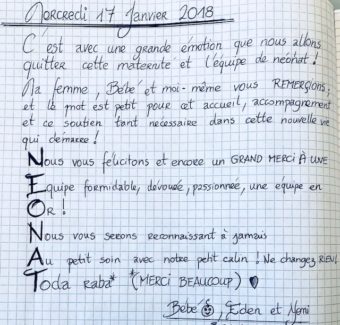 Mercredi 17 Janvier 2018
C'est avec une grande émotion que nous allons
quitter cette maternité et l'équipe de néonat !
Ma femme, Bébé et moi-même vous REMERCIONS,
et le mot est petit pour cet accueil, accompagnement
et ce soutien tant nécessaire dans cette nouvelle vie
qui démarre !
Nous vous félicitons et encore un GRAND MERCI À UNE
Equipe formidable, dévouée, passionnée, une équipe en
Or !
Nous vous serons reconnaissant à jamais
Au petit soin avec notre petit calin ! Ne changez RIEN !
Toda raba* *(MERCI BEAUCOUP)
Bébé, Eden et Nomi